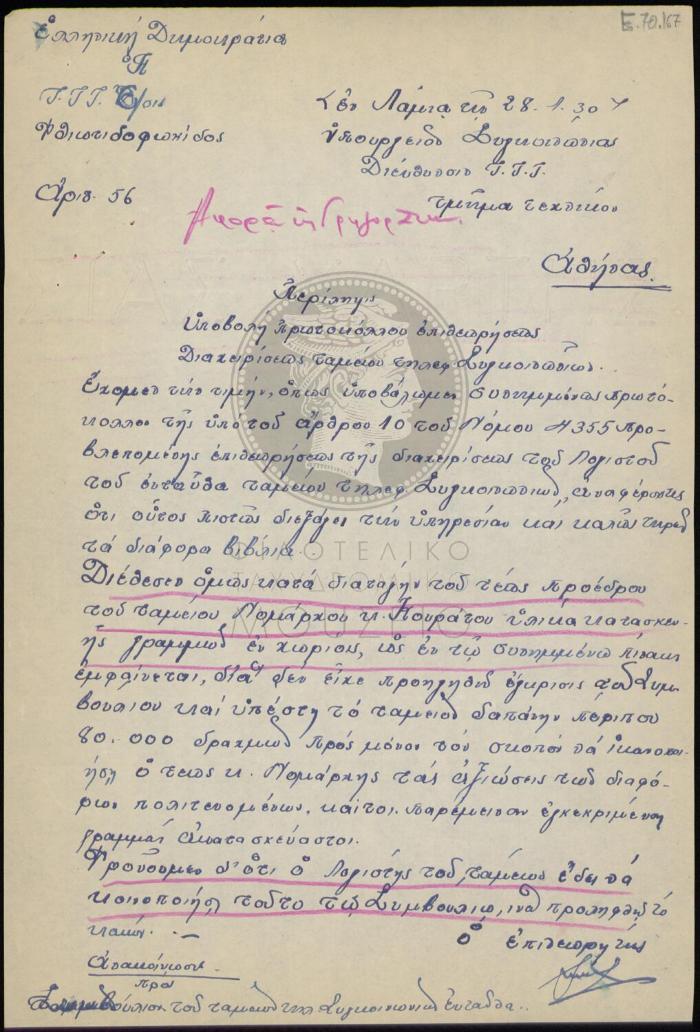 Ε.70./67
Ἑλληνική Δημοκρατία
Τ.Τ.Τ.
Φθιωτιδοφωκίδος
Ἀριθ. 56
Ἐν Λαμίᾳ τῇ 28.1.30
Ὑπουργεῖον Συγκοινωνίας
Διεύθυνσιν Τ.Τ.Τ.
τμῆμα τεχνικόν
Ἀθήνας.
Περίληψις
Ὑποβολή πρωτοκόλλου ἐπιθεωρήσεως
Διαχειρίσεως ταμείου τηλεφ Συγκοινωνιῶν.
Ἔχομεν τήν τιμήν, ὅπως ὑποβάλωμεν συνημμένως πρωτό-
κολλον τῆς ὑπό τοῦ ἄρθρου 10 τοῦ Νόμου 4355 προ-
βλεπομένης ἐπιθεωρήσεως τῆς διαχειρίσεως τοῦ Λογιστοῦ
τοῦ ἐνταῦθα ταμείου τηλεφ. Συγκοινωνιῶν, ἀναφέροντες
ὅτι οὗτος πιστῶς διεξάγει τήν ὑπηρεσίαν καί καλῶς τηρεῖ
τά διάφορα βιβλία.
Διέθεσεν ὅμως κατά διαταγήν τοῦ τέως προέδρου
τοῦ ταμείου Νομάρχου κ. Κουράτου ὑλικά κατασκευ-
ῆς γραμμῶν ἐν χωρίοις, ὡς ἐν τῷ συνημμένῳ πίνακι
ἐμφαίνεται, δι' ἅ δέν εἶχε προηγηθῆ ἔγκρισις τοῦ Συμ-
βουλίου καί ὑπέστη τό ταμεῖον δαπάνην περίπου
80.000 δραχμῶν πρός μόνον τόν σκοπόν νά ἱκανοποι-
ήσῃ ὁ τέως κ. Νομάρχης τάς ἀξιώσεις τῶν διαφό-
ρων πολιτευομένων, καίτοι παρέμειναν ἐγκεκριμέναι
γραμμαί ἀκατασκεύαστοι.
Φρονοῦμεν δ' ὅτι ὁ Λογιστής τοῦ ταμείου ἔδει νά
κοινοποιήσῃ τοῦτο τῷ Συμβουλίῳ, ἵνα προληφθῇ τό
κακόν.
Ὁ Ἐπιθεωρητής
Ἀνακοίνωσις
πρός
Συμβούλιον τοῦ ταμείου τηλ Συγκοινωνιῶν Ἐνταῦθα.
ΦΙΛΟΤΕΛΙΚΟ
ΤΑΧΥΔΡΟΜΙΚΟ
ΜΟΥΣΕΙΟ